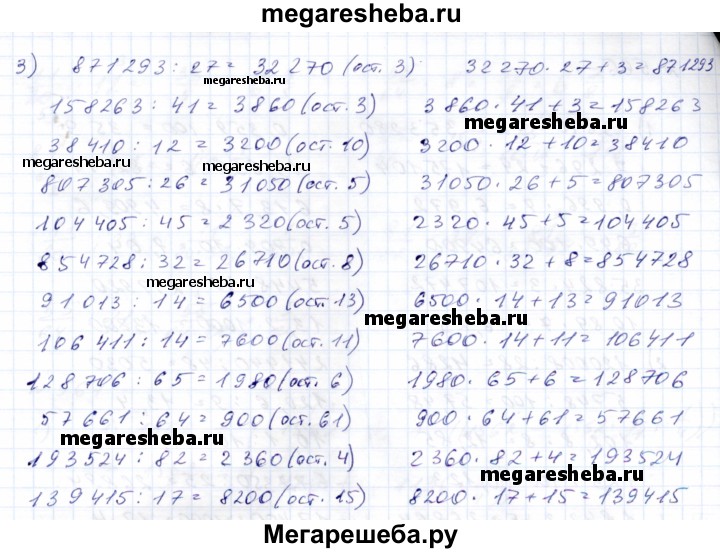 megaresheba.ru
3) 871293 : 27 = 32270 (ост. 3) 32270 · 27 + 3 = 871293
megaresheba.ru
158263 : 41 = 3860 (ост. 3) 3860 · 41 + 3 = 158263
megaresheba.ru
38410 : 12 = 3200 (ост. 10) 3200 · 12 + 10 = 38410
megaresheba.ru megaresheba.ru
807305 : 26 = 31050 (ост. 5) 31050 · 26 + 5 = 807305
104405 : 45 = 2320 (ост. 5) 2320 · 45 + 5 = 104405
854728 : 32 = 26710 (ост. 8) 26710 · 32 + 8 = 854728
megaresheba.ru
91013 : 14 = 6500 (ост. 13) 6500 · 14 + 13 = 91013
megaresheba.ru
106411 : 14 = 7600 (ост. 11) 7600 · 14 + 11 = 106411
128706 : 65 = 1980 (ост. 6) 1980 · 65 + 6 = 128706
57661 : 64 = 900 (ост. 61) 900 · 64 + 61 = 57661
megaresheba.ru
193524 : 82 = 2360 (ост. 4) 2360 · 82 + 4 = 193524
megaresheba.ru
139415 : 17 = 8200 (ост. 15) 8200 · 17 + 15 = 139415
Мегарешеба.ру